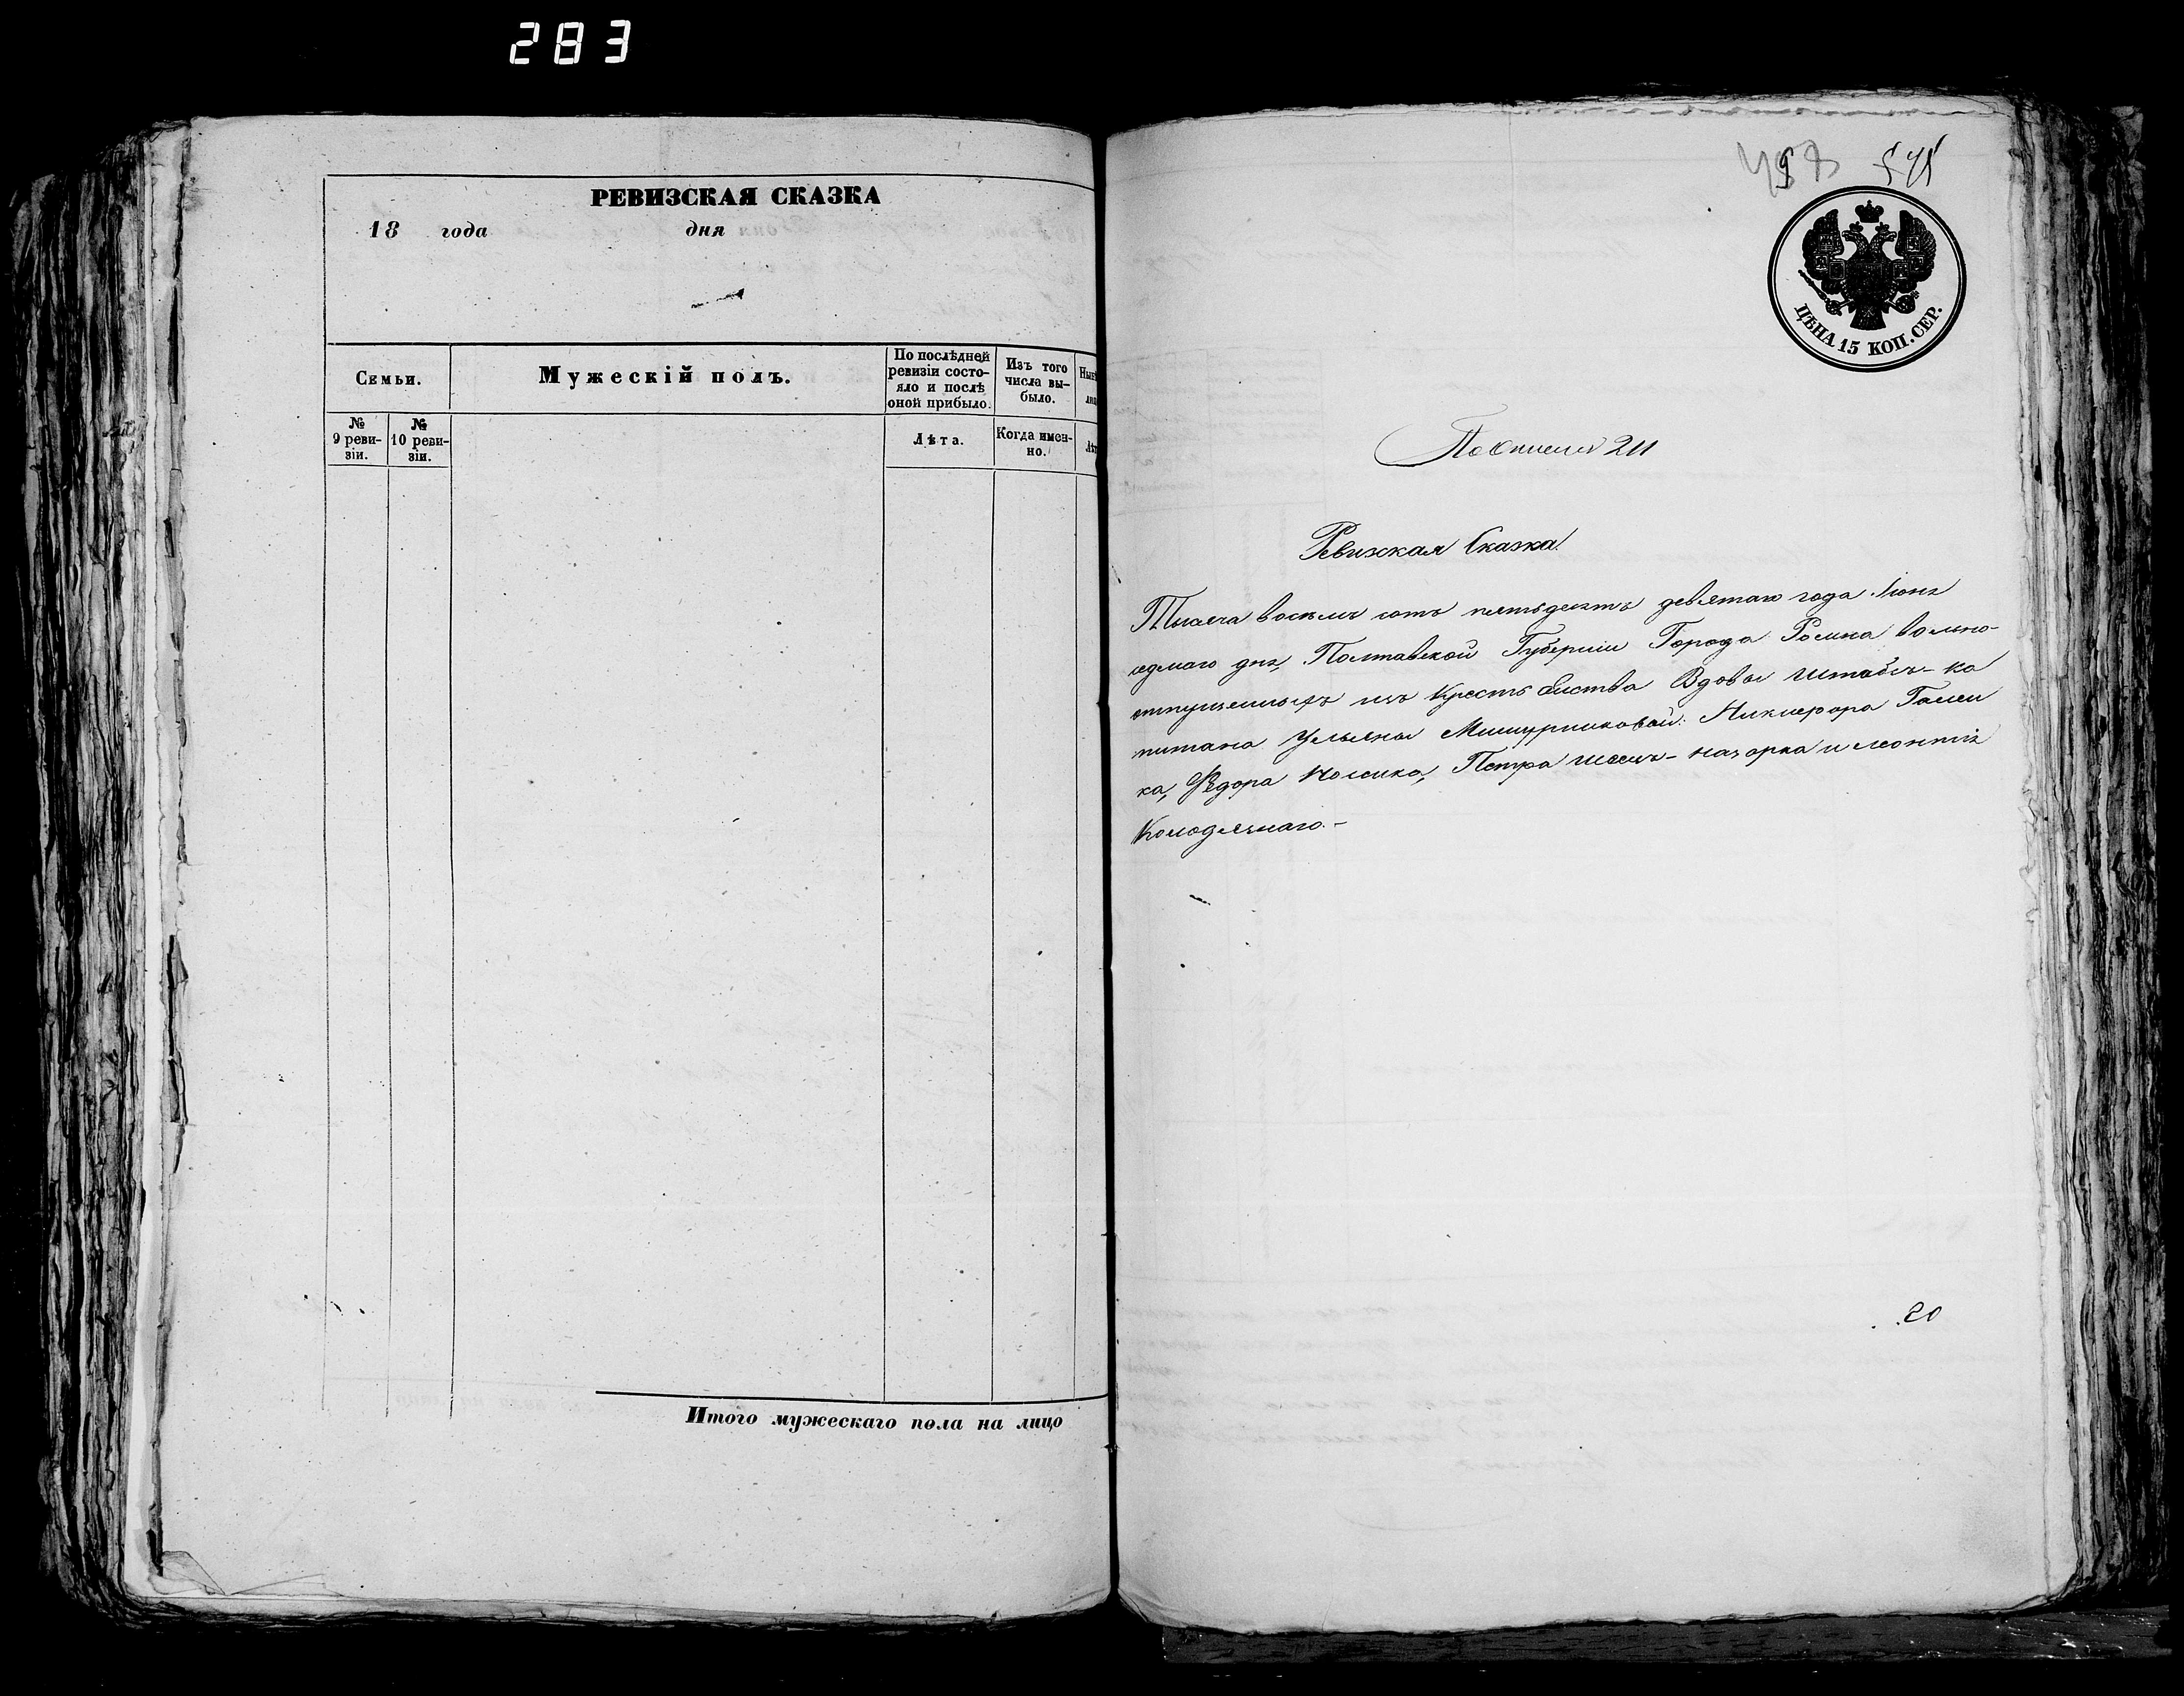 283
РЕВИЗСКАЯ СКАЗКА
18 года дня
Семьи.
Мужескій полъ.
По послѣдней ревизіи состо-
яло и послѣ
оной прибыло.
Изъ того
числа вы-
было.
№
9 реви-
зіи.
№
10 реви-
зіи.
Лѣта.
Когда имен-
но.
Итого мужескаго пола на лицо
ЦѢНА 15 КОП. СЕР.
Ревизская Сказка
Тысяча восемь сотъ пятьдесятъ девятаго года Іюня
седмаго дня, Полтавской Губерніи Города Ромна вольно-
отпущенныхъ изъ Крестьянства Вдовы Штабсъ-ка
питана Ульяны Мишурниковой: Никифора
ка, Федора Петра и Леонтія
Колодяжнаго.-
20